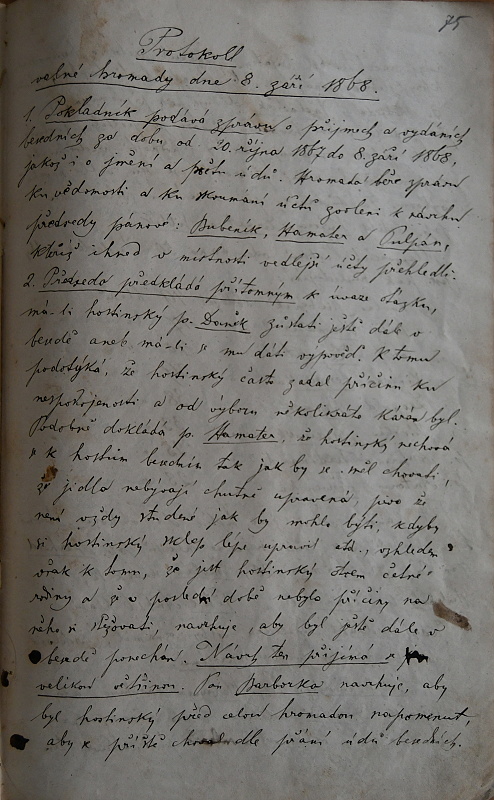 75
Protokoll
valné hromady dne 8. září 1868.
1. Pokladník podává zprávu o příjmech a vydáních
besedních za dobu od 20. října 1867 do 8. září 1868,
jakož i o jmění a počtu údů. Hromada béře zprávu
ku vědomosti a ku skoumání účtů zvoleni k návrhu
předsedy pánové: Bubeník, Hamater a Pulpán,
kteříž ihned v místnosti vedlejší účty přehledli.
2. Předseda předkládá přítomným k úvaze otázku,
má-li hostinský p. Daněk zůstati ještě dále v
besedě aneb má-li se mu dáti výpověď. K tomu
podotýká, že hostinský často zadal příčinu ku
nespokojenosti a od výboru několikráte kárán byl.
Podobně dokládá p. Hamater, že hostinský nechová
se k hostům besedním tak jak by se měl chovati,
že jídla nebývají chutně upravená, pivo že
není vždy studené jak by mohlo býti, kdyby
si hostinský sklep lépe upravil atd., vzhledem
však k tomu, že jest hostinský otcem četné
rodiny a že v poslední době nebylo příčiny na
něho si stěžovati, navrhuje, aby byl ještě dále v
besedě ponechán. Návrh ten přijímá se
velikou většinou. Pan Barborka navrhuje, aby
byl hostinský před celou hromadou napomenut,
aby se příště choval dle přání údů besedních.